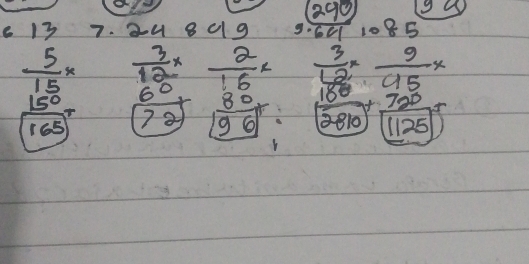 240
6 13 7. 24 8 49 9. 64 10 85
5 3 2 3 9
15 x 12 x 16 x 12 x 45 x
150 60 80 180 720
165 + 72 + 96 + 2810 + 1125 +